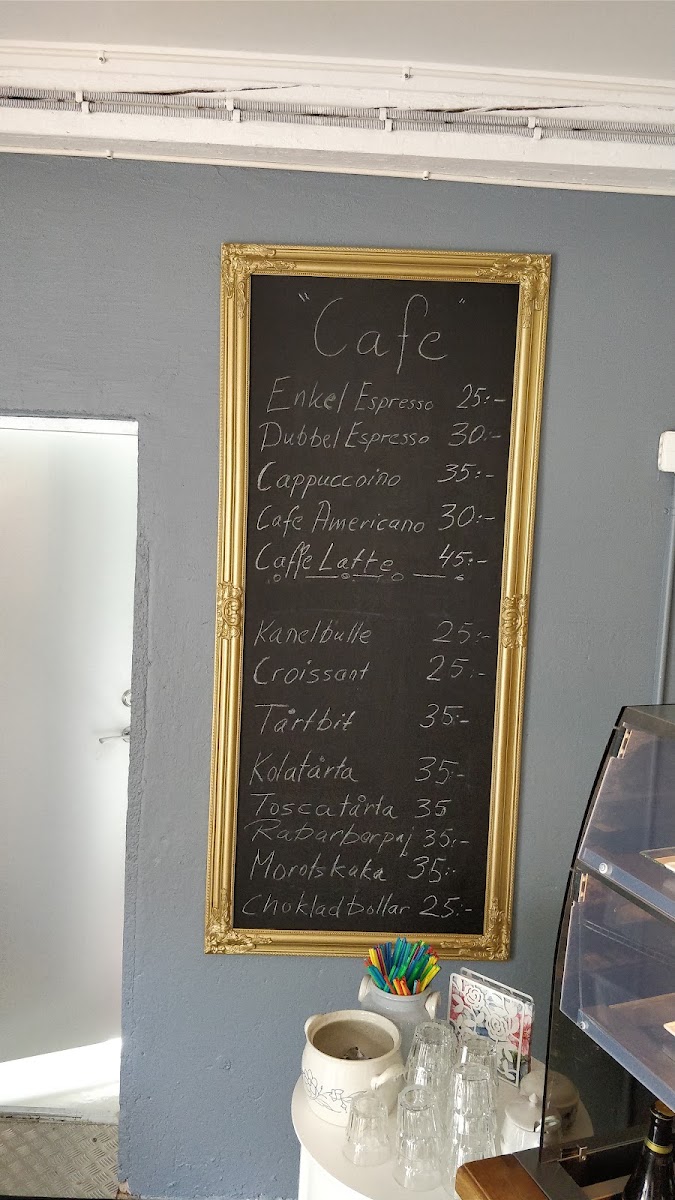 "Cafe"
Enkel Espresso 25:-
Dubbel Espresso 30:-
Cappuccoino 35:-
Cafe Americano 30:-
Caffe Latte 45:-
Kanelbulle 25:-
Croissant 25:-
Tårtbit 35:-
Kolatårta 35:-
Toscatårta 35
Rabarberpaj 35:-
Morotskaka 35:-
Chokladbollar 25:-